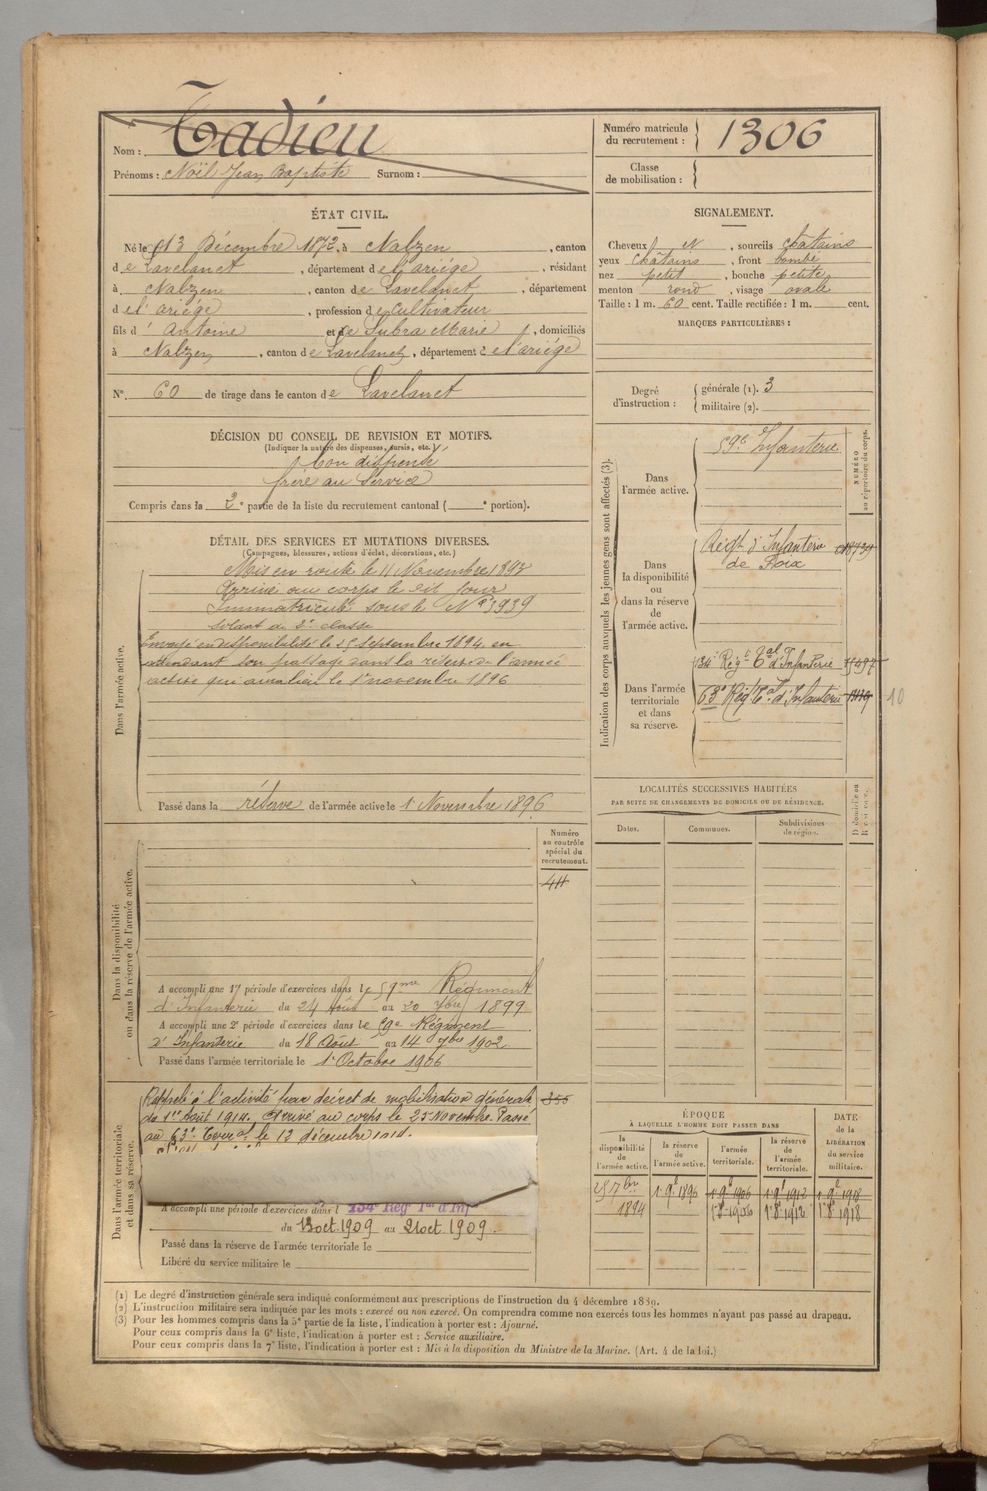 Nom : Tadieu
Prénoms : Noël Jean Baptiste Surnom :
Numéro matricule du recrutement : 1306
Classe de mobilisation :
ÉTAT CIVIL.
Né le 13 Décembre 1872, à Nalzen, canton
de Lavelanet, département de l'ariège, résidant
à Nalzen, canton de Lavelanet, département
de l'ariège, profession de cultivateur
fils d' Antoine et de Subra Marie, domiciliés
à Nalzen, canton de Lavelanet, département de l'ariège
N° 60 de tirage dans le canton de Lavelanet
SIGNALEMENT.
Cheveux et N, sourcils châtains
yeux châtains, front bombé
nez petit, bouche petite
menton rond, visage ovale
Taille : 1 m. 60 cent. Taille rectifiée : 1 m. cent.
MARQUES PARTICULIÈRES :
Degré d'instruction : générale (1). 3
militaire (2).
DÉCISION DU CONSEIL DE REVISION ET MOTIFS.
(Indiquer la nature des dispenses, sursis, etc.)
bon dispensé
frère au service
Compris dans la 2e partie de la liste du recrutement cantonal ( e portion).
DÉTAIL DES SERVICES ET MUTATIONS DIVERSES.
(Campagnes, blessures, actions d'éclat, décorations, etc.)
Dans l'armée active.
Mis en route le 11 Novembre 1893
Arrivé au corps le dit jour
Immatriculé sous le N° 3939
soldat de 2e classe
Envoyé en disponibilité le 25 Septembre 1894, en
attendant son passage dans la réserve de l'armée
active qui aura lieu le 1er novembre 1896
Passé dans la réserve de l'armée active le 1 Novembre 1896
Indication des corps auxquels les jeunes gens sont affectés (3).
NUMÉRO au répertoire du corps.
Dans l'armée active.
59e Infanterie
Dans la disponibilité ou dans la réserve de l'armée active.
Régt d'Infanterie
de Foix
Dans l'armée territoriale et dans sa réserve.
134e Régt Tal d'Infanterie
63e Régt Tal d'Infanterie
10
LOCALITÉS SUCCESSIVES HABITÉES
PAR SUITE DE CHANGEMENTS DE DOMICILE OU DE RÉSIDENCE.
Dates. Communes. Subdivisions de région. D domicile ou R résidence.
Dans la disponibilité ou dans la réserve de l'armée active.
Numéro au contrôle spécial du recrutement.
411
A accompli une 1re période d'exercices dans le 59me Régiment
d'Infanterie du 24 Août au 20 7bre 1899
A accompli une 2e période d'exercices dans le 59e Régiment
d'Infanterie du 18 Août au 14 7bre 1902
Passé dans l'armée territoriale le 1 Octobre 1906
Dans l'armée territoriale et dans sa réserve.
Rappelé à l'activité par décret de mobilisation générale
du 1er Août 1914. Arrivé au corps le 25 Novembre. Passé
au 63e Terral le 12 décembre 1914.
A accompli une période d'exercices dans l 134e Rég' T'al d'Inf'
du 13 oct. 1909 au 21 oct. 1909.
Passé dans la réserve de l'armée territoriale le
Libéré du service militaire le
ÉPOQUE
À LAQUELLE L'HOMME DOIT PASSER DANS
la disponibilité de l'armée active. la réserve de l'armée active. l'armée territoriale. la réserve de l'armée territoriale. DATE de la LIBÉRATION du service militaire.
25 7bre 1894 1er 9bre 1896 1er 9bre 1906 1er 9bre 1912 1er 9bre 1918
1er 8bre 1906 1er 8bre 1912 1er 8bre 1918
(1) Le degré d'instruction générale sera indiqué conformément aux prescriptions de l'instruction du 4 décembre 1889.
(2) L'instruction militaire sera indiquée par les mots : exercé ou non exercé. On comprendra comme non exercés tous les hommes n'ayant pas passé au drapeau.
(3) Pour les hommes compris dans la 5e partie de la liste, l'indication à porter est : Ajourné.
Pour ceux compris dans la 6e liste, l'indication à porter est : Service auxiliaire.
Pour ceux compris dans la 7e liste, l'indication à porter est : Mis à la disposition du Ministre de la Marine. (Art. 4 de la loi.)